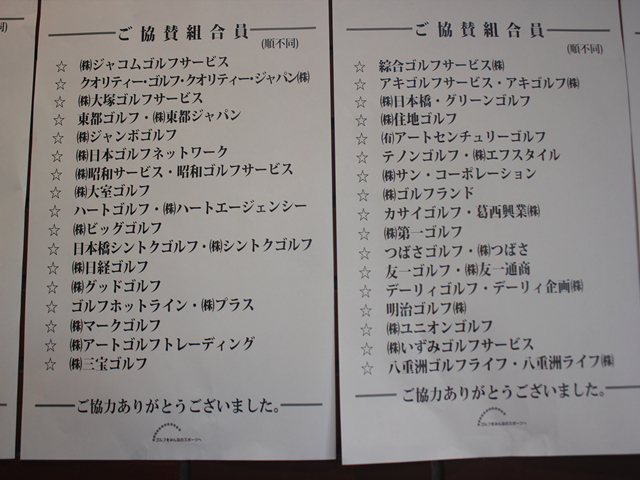 ご協賛組合員
(順不同)
☆ ㈱ジャコムゴルフサービス
☆ クオリティー・ゴルフ・クオリティー・ジャパン㈱
☆ ㈱大塚ゴルフサービス
☆ 東都ゴルフ・㈱東都ジャパン
☆ ㈱ジャンボゴルフ
☆ ㈱日本ゴルフネットワーク
☆ ㈱昭和サービス・昭和ゴルフサービス
☆ ㈱大室ゴルフ
☆ ハートゴルフ・㈱ハートエージェンシー
☆ ㈱ビッグゴルフ
☆ 日本橋シントクゴルフ・㈱シントクゴルフ
☆ ㈱日経ゴルフ
☆ ㈱グッドゴルフ
☆ ゴルフホットライン・㈱プラス
☆ ㈱マークゴルフ
☆ ㈱アートゴルフトレーディング
☆ ㈱三宝ゴルフ
ご協力ありがとうございました。
ゴルフをみんなのスポーツへ
ご協賛組合員
(順不同)
☆ 綜合ゴルフサービス㈱
☆ アキゴルフサービス・アキゴルフ㈱
☆ ㈱日本橋・グリーンゴルフ
☆ ㈱住地ゴルフ
☆ ㈲アートセンチュリーゴルフ
☆ テノンゴルフ・㈱エフスタイル
☆ ㈱サン・コーポレーション
☆ ㈱ゴルフランド
☆ カサイゴルフ・葛西興業㈱
☆ ㈱第一ゴルフ
☆ つばさゴルフ・㈱つばさ
☆ 友一ゴルフ・㈱友一通商
☆ デーリィゴルフ・デーリィ企画㈱
☆ 明治ゴルフ㈱
☆ ㈱ユニオンゴルフ
☆ ㈱いずみゴルフサービス
☆ 八重洲ゴルフライフ・八重洲ライフ㈱
ご協力ありがとうございました。
ゴルフをみんなのスポーツへ